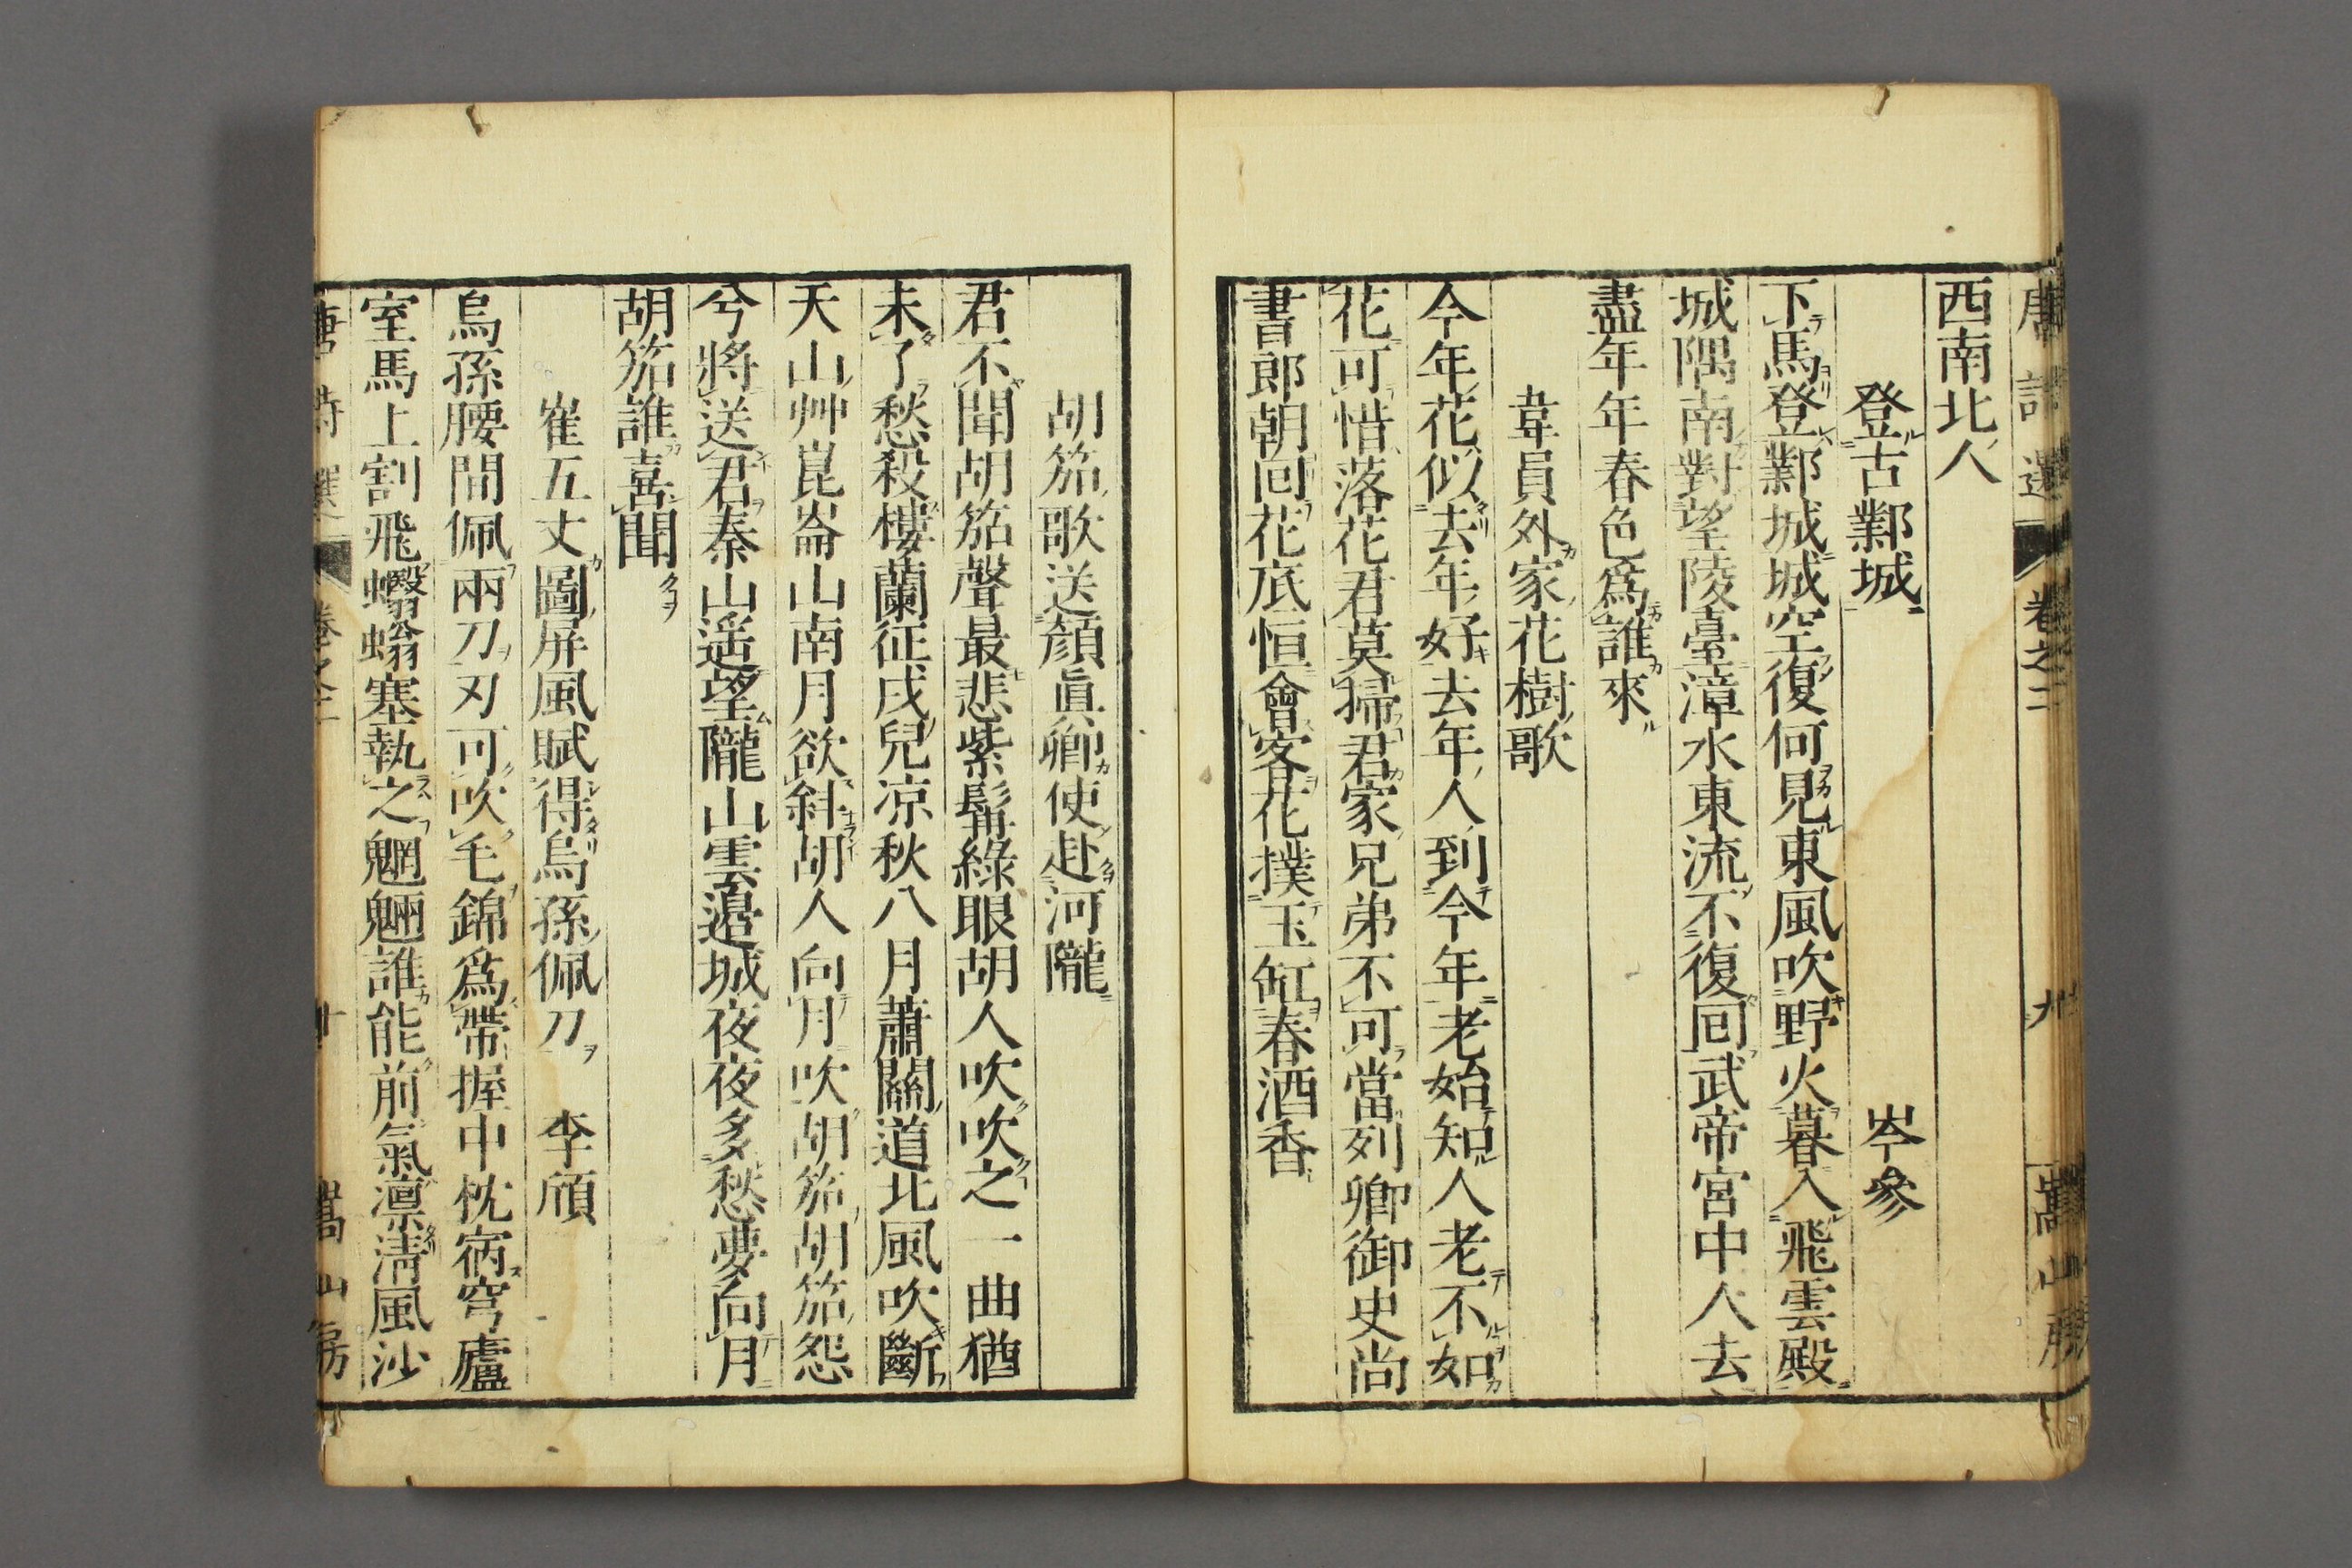 唐詩選 卷之二 九 嵩山房
西南北人
登古鄴城 岑參
下馬登鄴城城空復何見東風吹野火暮入飛雲殿
城隅南對望陵臺漳水東流不復回武帝宮中人去
盡年年春色爲誰來
韋員外家花樹歌
今年花似去年好去年人到今年老始知人老不如
花可惜落花君莫掃君家兄弟不可當列卿御史尚
書郎朝回花底恒會客花撲玉缸春酒香
胡笳歌送顏眞卿使赴河隴
君不聞胡笳聲最悲紫髯綠眼胡人吹吹之一曲猶
未了愁殺樓蘭征戍兒凉秋八月蕭關道北風吹斷
天山艸崑崙山南月欲斜胡人向月吹胡笳胡笳怨
兮將送君秦山遥望隴山雲邊城夜夜多愁夢向月
胡笳誰喜聞
崔五丈圖屏風賦得烏孫佩刀 李頎
烏孫腰間佩兩刀刃可吹毛錦爲帶握中枕宿穹廬
室馬上割飛蠮螉塞執之魍魎誰能前氣凛淸風沙
唐詩選 卷之二 十 嵩山房